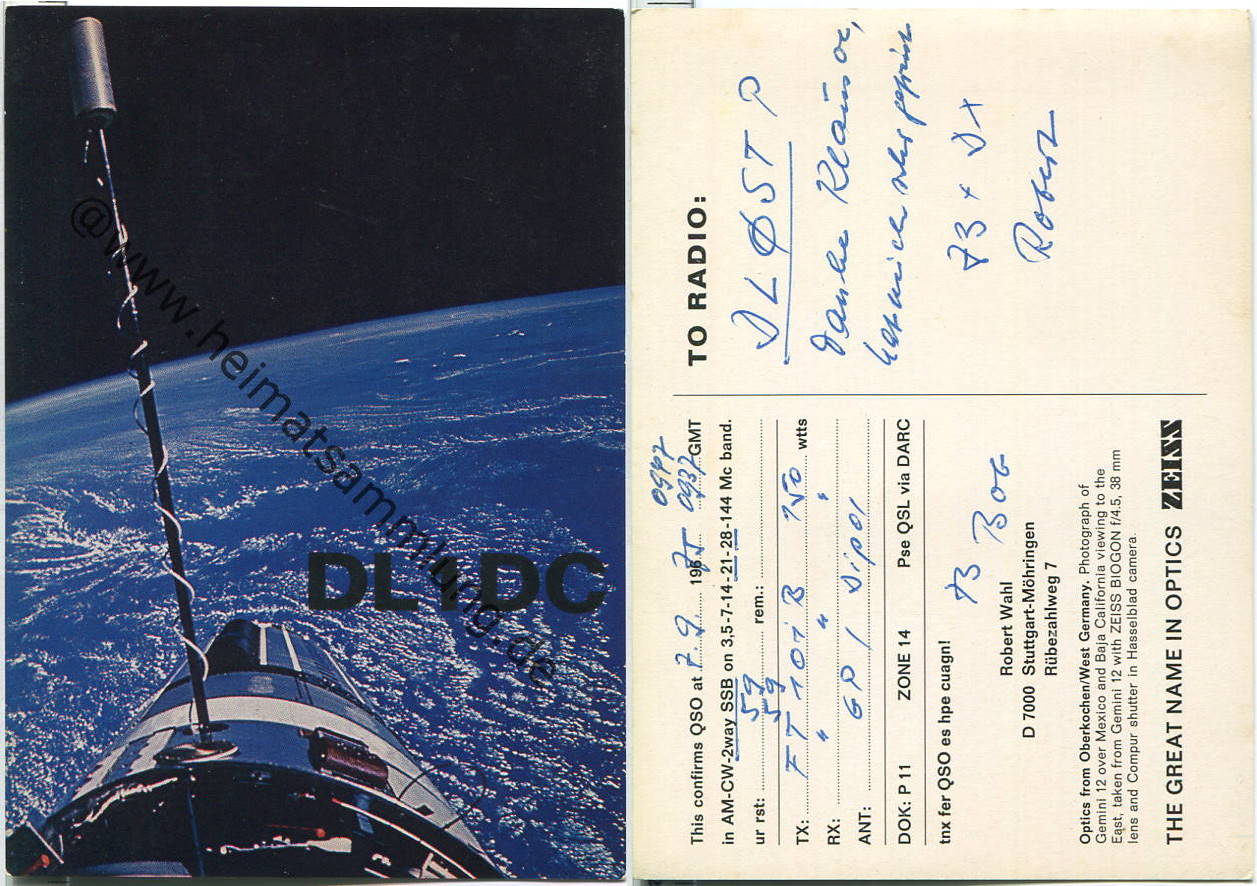 @www.heimatsammlung.de
DL1DC
TO RADIO:
DLØSTP
Danke Klaus
73 + DX
Robert
0947
This confirms QSO at 7.9. 1967 0937 GMT
in AM-CW-2way SSB on 3,5-7-14-21-28-144 Mc band.
ur rst: 59 rem.:
59
TX: FT 101 B 150 wtts
RX: " " "
ANT: GP / Dipol
DOK: P 11 ZONE 14 Pse QSL via DARC
tnx fer QSO es hpe cuagn!
73 Bob
Robert Wahl
D 7000 Stuttgart-Möhringen
Rübezahlweg 7
Optics from Oberkochen/West Germany. Photograph of
Gemini 12 over Mexico and Baja California viewing to the
East, taken from Gemini 12 with ZEISS BIOGON f/4.5, 38 mm
lens and Compur shutter in Hasselblad camera.
THE GREAT NAME IN OPTICS ZEISS